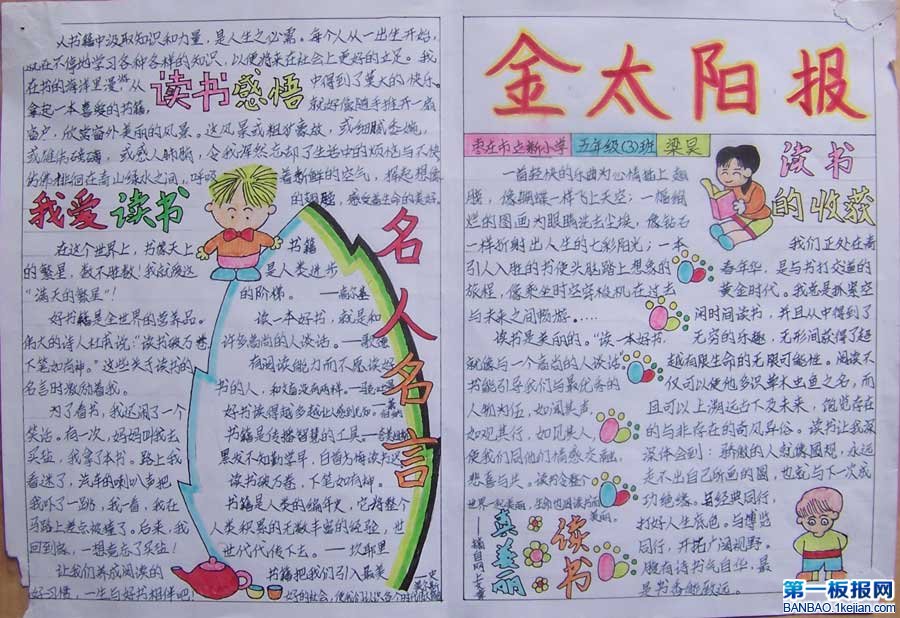 从书籍中汲取知识和力量，是人生之必需。每个人从一出生开始，
就在不停地学习各种各样的知识，以便将来在社会上更好的立足。我
在书的海洋里漫游，从
中得到了莫大的快乐。
读书感悟
拿起一本喜爱的书籍，
就好像随手推开一扇
窗户，欣赏窗外美丽的风景。这风景或粗犷豪放，或细腻委婉，
或感人肺腑，令我浑然忘却了生活中的烦恼与不快
徘徊在青山绿水之间，呼吸
着新鲜的空气，
感受着生命的美好。
我爱读书
在这个世界上，书像天上
的繁星，数不胜数！我就痴这
“满天的繁星”！
好书籍是全世界的营养品。
伟大的诗人杜甫说：“读书破万卷
下笔如有神。”这些关于读书的
名言时时激励着我。
为了看书，我还闹了一个
笑话。有一次，妈妈叫我去
买盐，我拿了本书。路上我
看迷了，汽车的喇叭声把
我吓了一跳，我一看，我在
马路上差点被撞了。后来，我
回到家，一想竟忘了买盐！
让我们养成阅读的
好习惯，一生与好书相伴吧！
名人名言
书籍
是人类进步
的阶梯。 ——高尔基
读一本好书，就是和
许多高尚的人谈话。——歌德
有阅读能力而不愿读好
书的人，和文盲没有两样。
好书读得越多越让人感到无知。
书籍是传播智慧的工具。
黑发不知勤学早，白首方悔读书迟
读书破万卷，下笔如有神。
书籍是人类的编年史，它将整个
人类积累的无数丰富的经验，世
世代代传下去。——
书籍把我们引入最美
好的社会，使我们认识各个时代
金太阳报
枣庄市立新小学 五年级(3)班 梁昊
一首轻快的乐曲为心情插上翅
膀，像蝴蝶一样飞上天空；一幅绚
烂的图画为眼睛洗去尘埃，像钻石
一样折射出人生的七彩阳光；一本
引人入胜的书使头脑踏上想象的
旅程，像乘坐时空穿梭机在过去
与未来之间畅游。……
读书是美丽的。“读一本好书，
就像与一个高尚的人谈话”
书能引导我们与最优秀的
人物为伍，如闻其声，
如观其行，如见其人，
使我们同他们情感交融，
悲喜与共。读书会使
世界一起美丽，
美丽。
读书
真美丽
读书
的收获
我们正处在青
春年华，是与书打交道的
黄金时代。我总是抓紧空
闲时间读书，并且从中得到了
无穷的乐趣，无形间获得了超
越有限生命的无限可能性。阅读不
仅可以使他多识草木虫鱼之名，而
且可以上溯远古下及未来，饱览存在
的与非存在的奇风异俗。读书让我深
深体会到：骄傲的人就像圆规，永远
走不出自己所画的圆，也就与下一次成
功绝缘。与经典同行，
打好人生底色。与博览
同行，开拓广阔视野。
腹有诗书气自华，最
是书香能致远。
第一板报网
BANBAO.1kejian.com